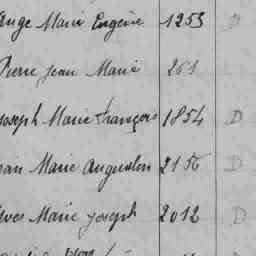 Ange Marie Eugène 1253 D
Pierre Jean Marie 261
Joseph Marie François 1854 D
Jean Marie Augustin 2156 D
Yves Marie Joseph 2012 D